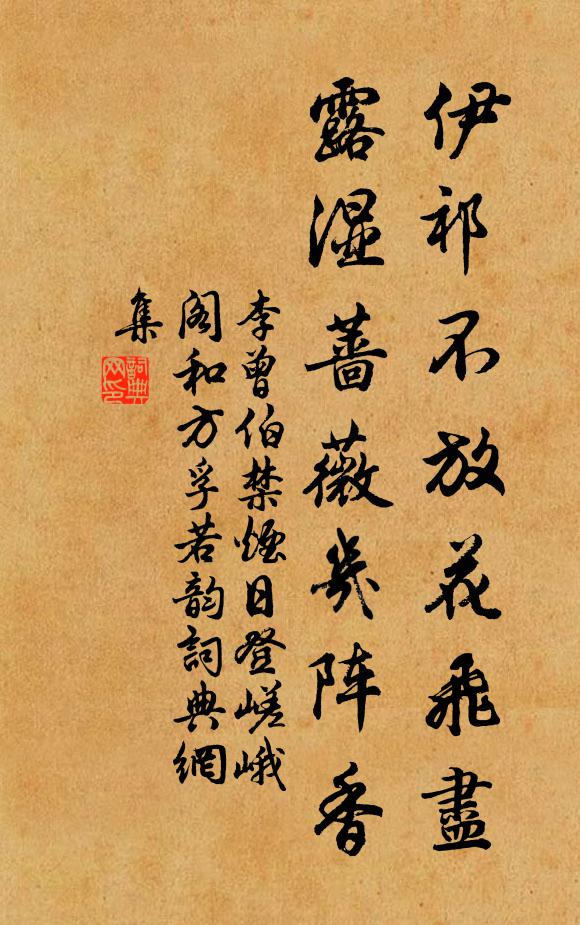 伊祁不放花飛盡
露湿薔薇幾阵香
李曾伯禁煙日登嵯峨
阁和方孚若韵詞典網
集
詞典网印